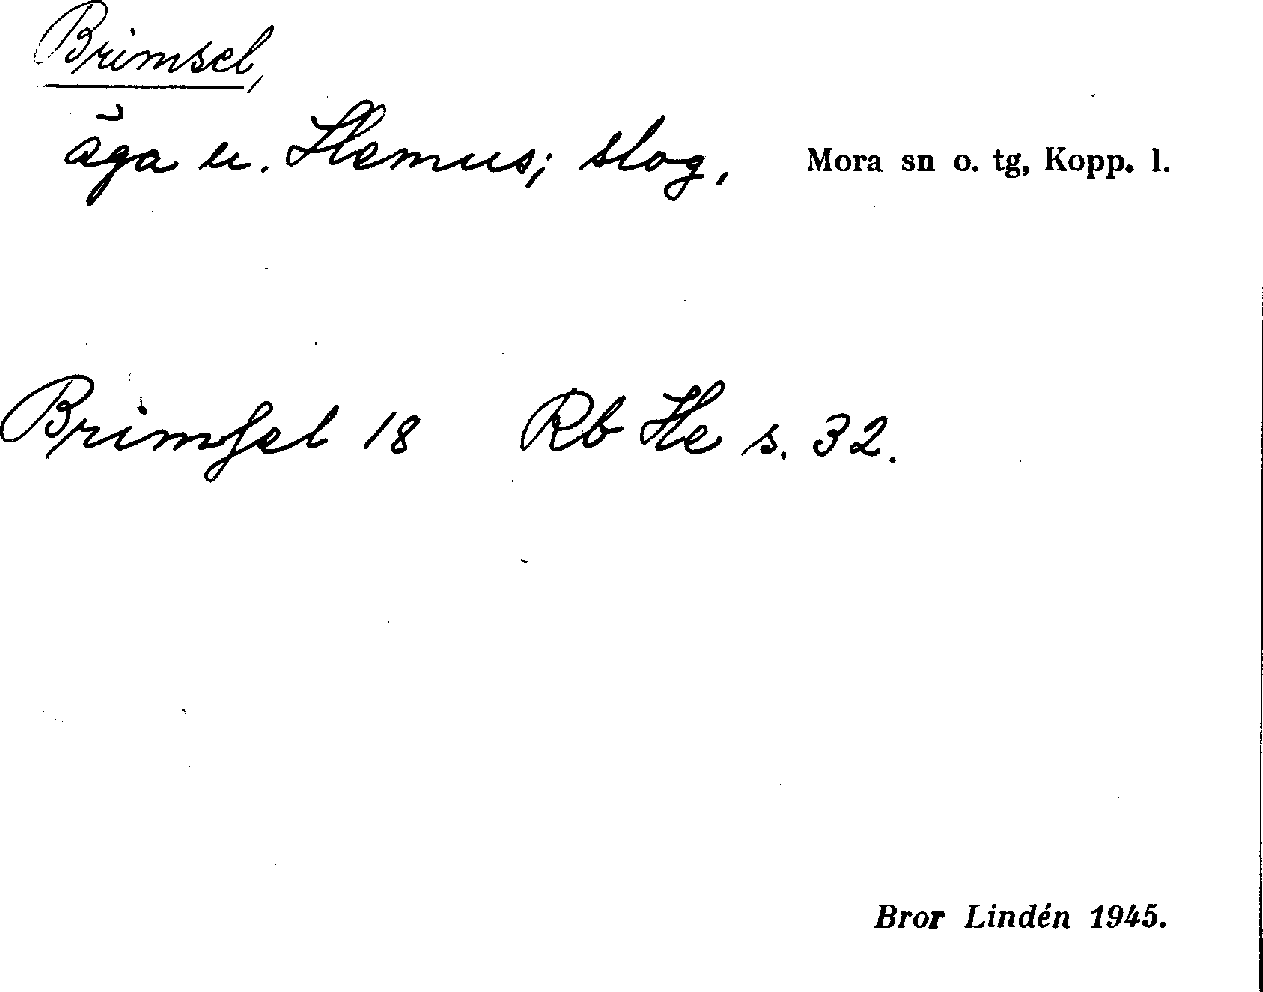 Brimsel,
äga u. Hemus; slog, Mora sn o. tg, Kopp. l.
Brimſel 18 Rb He s. 32.
Bror Lindén 1945.